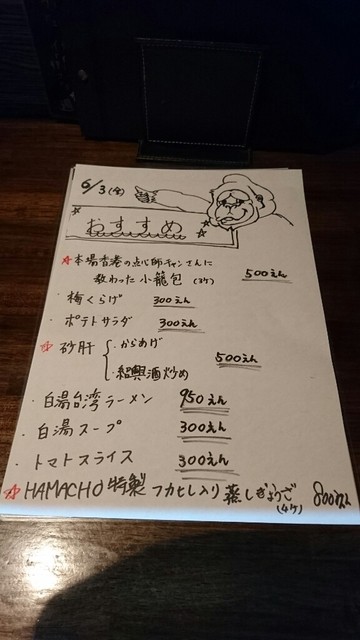 6/3(金)
おすすめ
本場香港の点心師チャンさんに
教わった小籠包(3ケ) 500えん
・梅くらげ 300えん
・ポテトサラダ 300えん
砂肝
・からあげ
・紹興酒炒め
500えん
・白湯台湾ラーメン 950えん
・白湯スープ 300えん
・トマトスライス 300えん
HAMACHO特製 フカヒレ入り蒸しぎょうざ(4ケ) 800えん